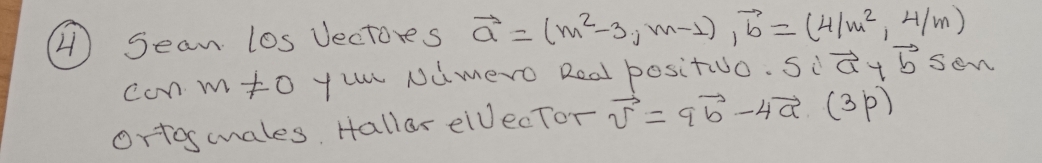 ④ Sean los Vectores a⃗ = (m²-3, m-1), b⃗ = (4/m², 4/m)
con m ≠ 0 y un Número Real positivo. Si a⃗ y b⃗ son
ortogonales. Hallar el Vector v⃗ = 9b⃗ - 4a⃗. (3p)